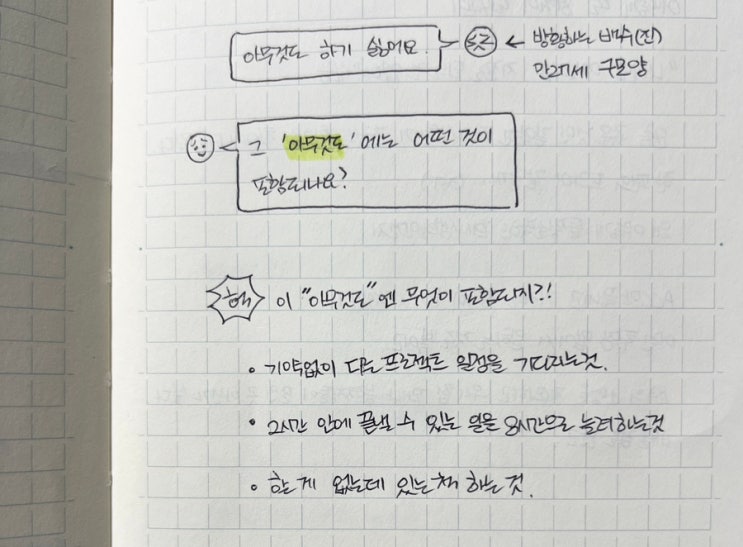 아무것도 하기 싫어요.
← 방황하는 백수(진)
만27세 구모양
그 '아무것도'에는 어떤 것이
포함되나요?
헉 이 "아무것도"엔 무엇이 포함되지?!
• 기약없이 다음 프로젝트 일정을 기다리는것.
• 2시간 안에 끝낼 수 있는 일을 8시간으로 늘려하는것
• 할게 없는데 있는척 하는것.